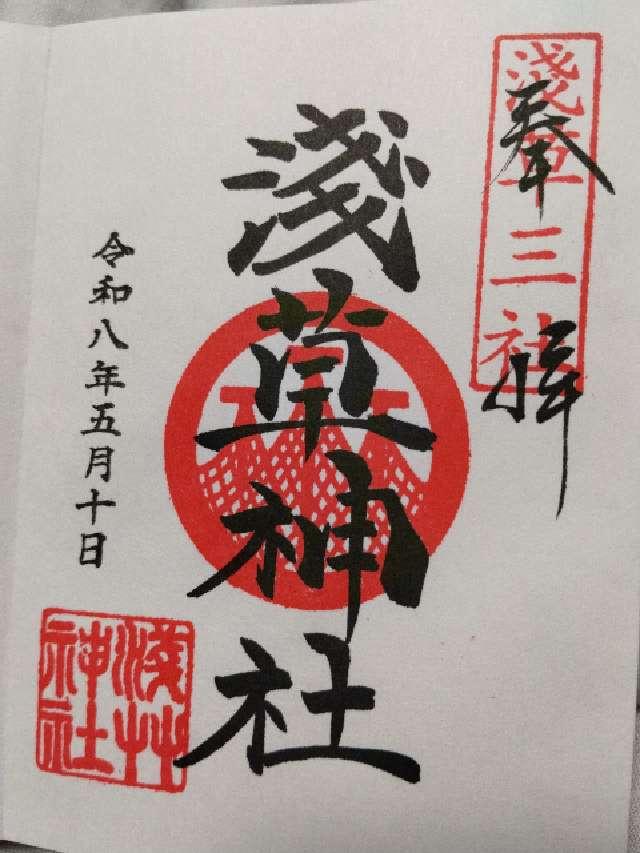 奉拝
淺草三社
淺草神社
令和八年五月十日
淺草
神社